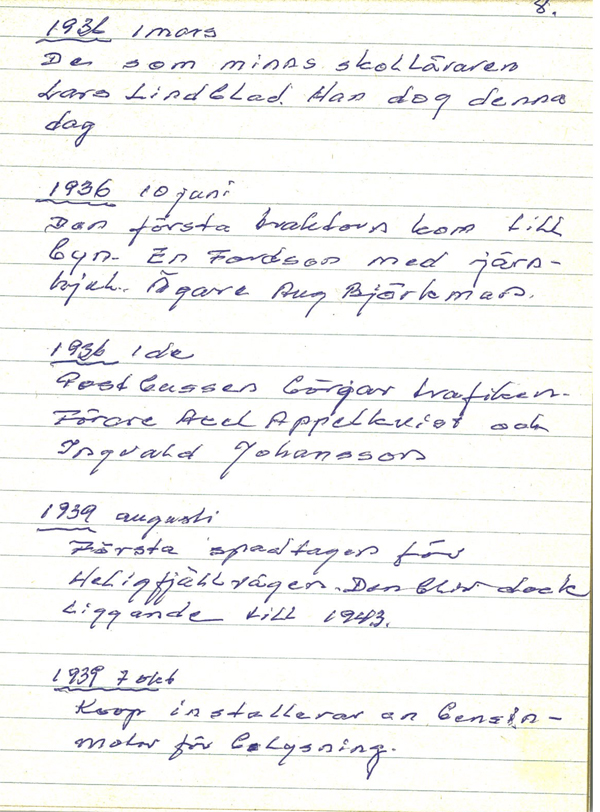 8.
1936 1 mars
De som minns skolläraren
Lars Lindblad. Han dog denna
dag
1936 10 juni
Den första traktorn kom till
byn. En Fordson med järn-
hjul. Ägare Aug Björkman.
1936 1 de
Postbussen börjar trafiken.
Förare Axel Appelkvist och
Ingvald Johansson
1939 augusti
Första spadtagen för
Heligfjällvägen. Den blir dock
liggande till 1943.
1939 7 okt
Koop installerar en bensin-
motor för belysning.